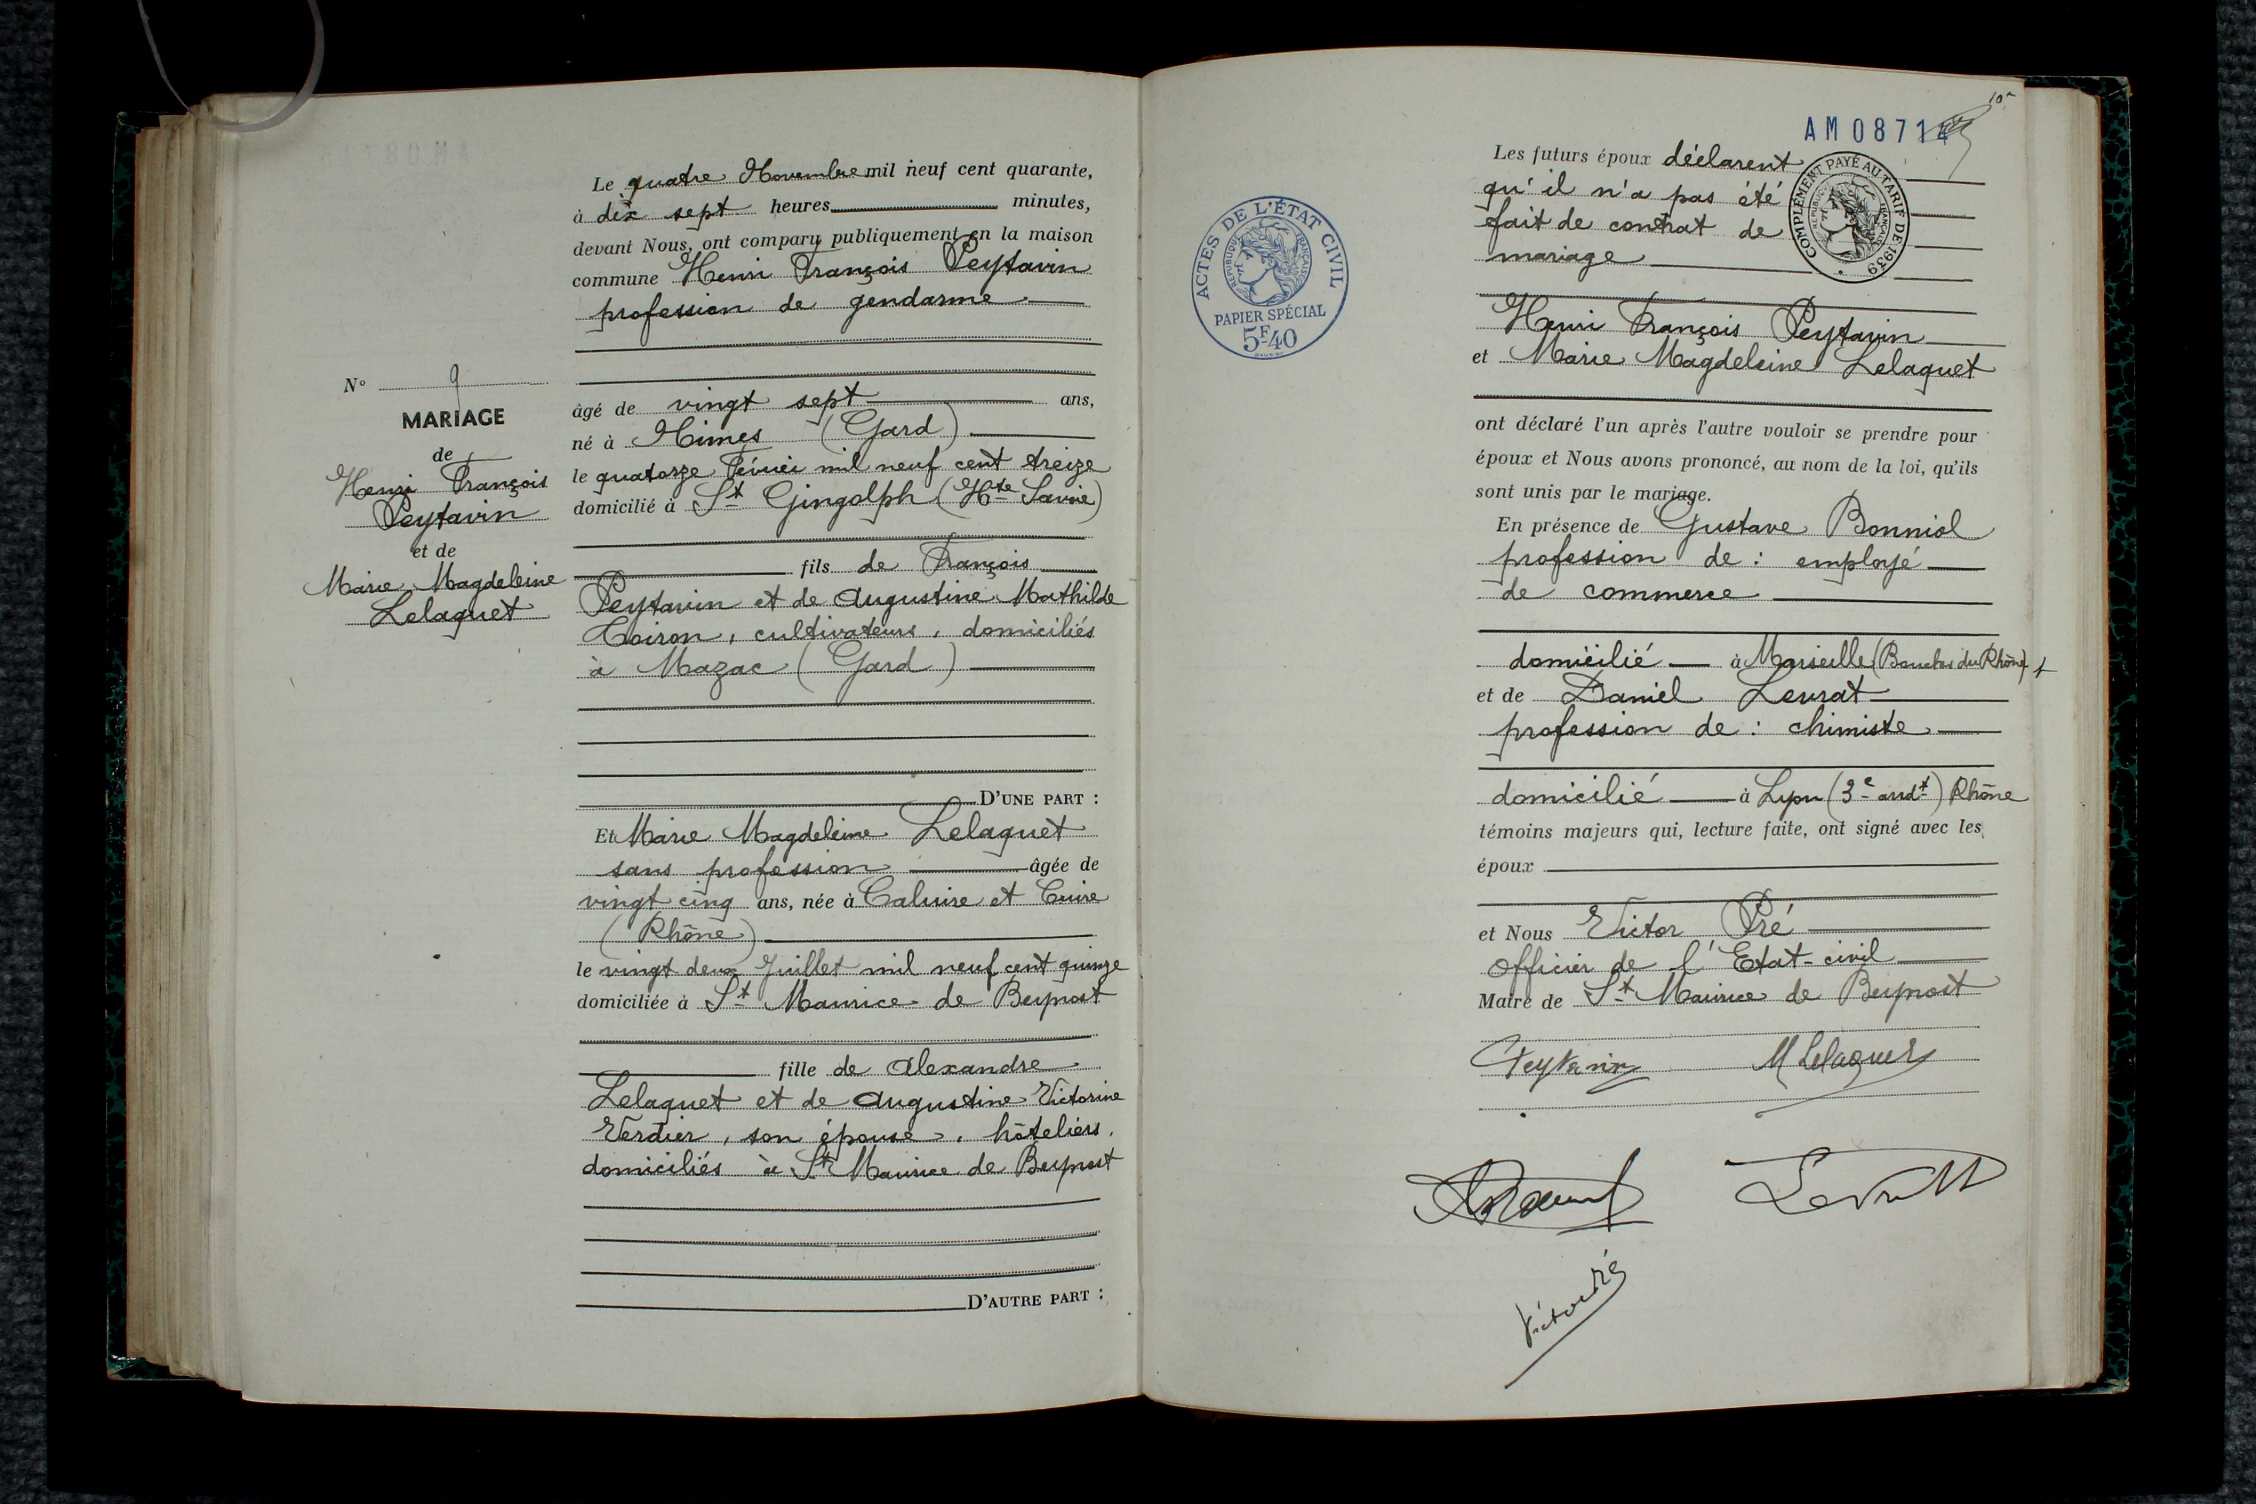 Le quatre Novembre mil neuf cent quarante,
à dix sept heures minutes,
devant Nous, ont comparu publiquement en la maison
commune Henri François Peytavin
profession de gendarme
N° 9
MARIAGE
de
Henri François
Peytavin
et de
Marie Magdeleine
Lelaquet
âgé de vingt sept ans,
né à Nimes (Gard)
le quatorze Février mil neuf cent treize
domicilié à St Gingolph (Hte Savoie)
fils de François
Peytavin et de Augustine Mathilde
Coiron, cultivateurs, domiciliés
à Mazac (Gard)
D'UNE PART :
Et Marie Magdeleine Lelaquet
sans profession âgée de
vingt cinq ans, née à Caluire et Cuire
(Rhône)
le vingt deux Juillet mil neuf cent quinze
domiciliée à St Maurice de Beynost
fille de Alexandre
Lelaquet et de Augustine Victorine
Verdier, son épouse, hôteliers,
domiciliés à St Maurice de Beynost
D'AUTRE PART :
ACTES DE L'ÉTAT CIVIL
RÉPUBLIQUE FRANÇAISE
PAPIER SPÉCIAL
5F40
AM08714
COMPLÉMENT PAYÉ AU TARIF DE 1939
RÉPUBLIQUE FRANÇAISE
Les futurs époux déclarent
qu'il n'a pas été
fait de contrat de
mariage
Henri François Peytavin
et Marie Magdeleine Lelaquet
ont déclaré l'un après l'autre vouloir se prendre pour
époux et Nous avons prononcé, au nom de la loi, qu'ils
sont unis par le mariage.
En présence de Gustave Bonniol
profession de : employé
de commerce
domicilié à Marseille (Bouches du Rhône)
et de Daniel Levrat
profession de : chimiste
domicilié à Lyon (3e arrdt) Rhône
témoins majeurs qui, lecture faite, ont signé avec les
époux
et Nous Victor Pré
Officier de l'Etat-civil
Maire de St Maurice de Beynost
Peytavin M Lelaquet
Levratt
Victor Pré